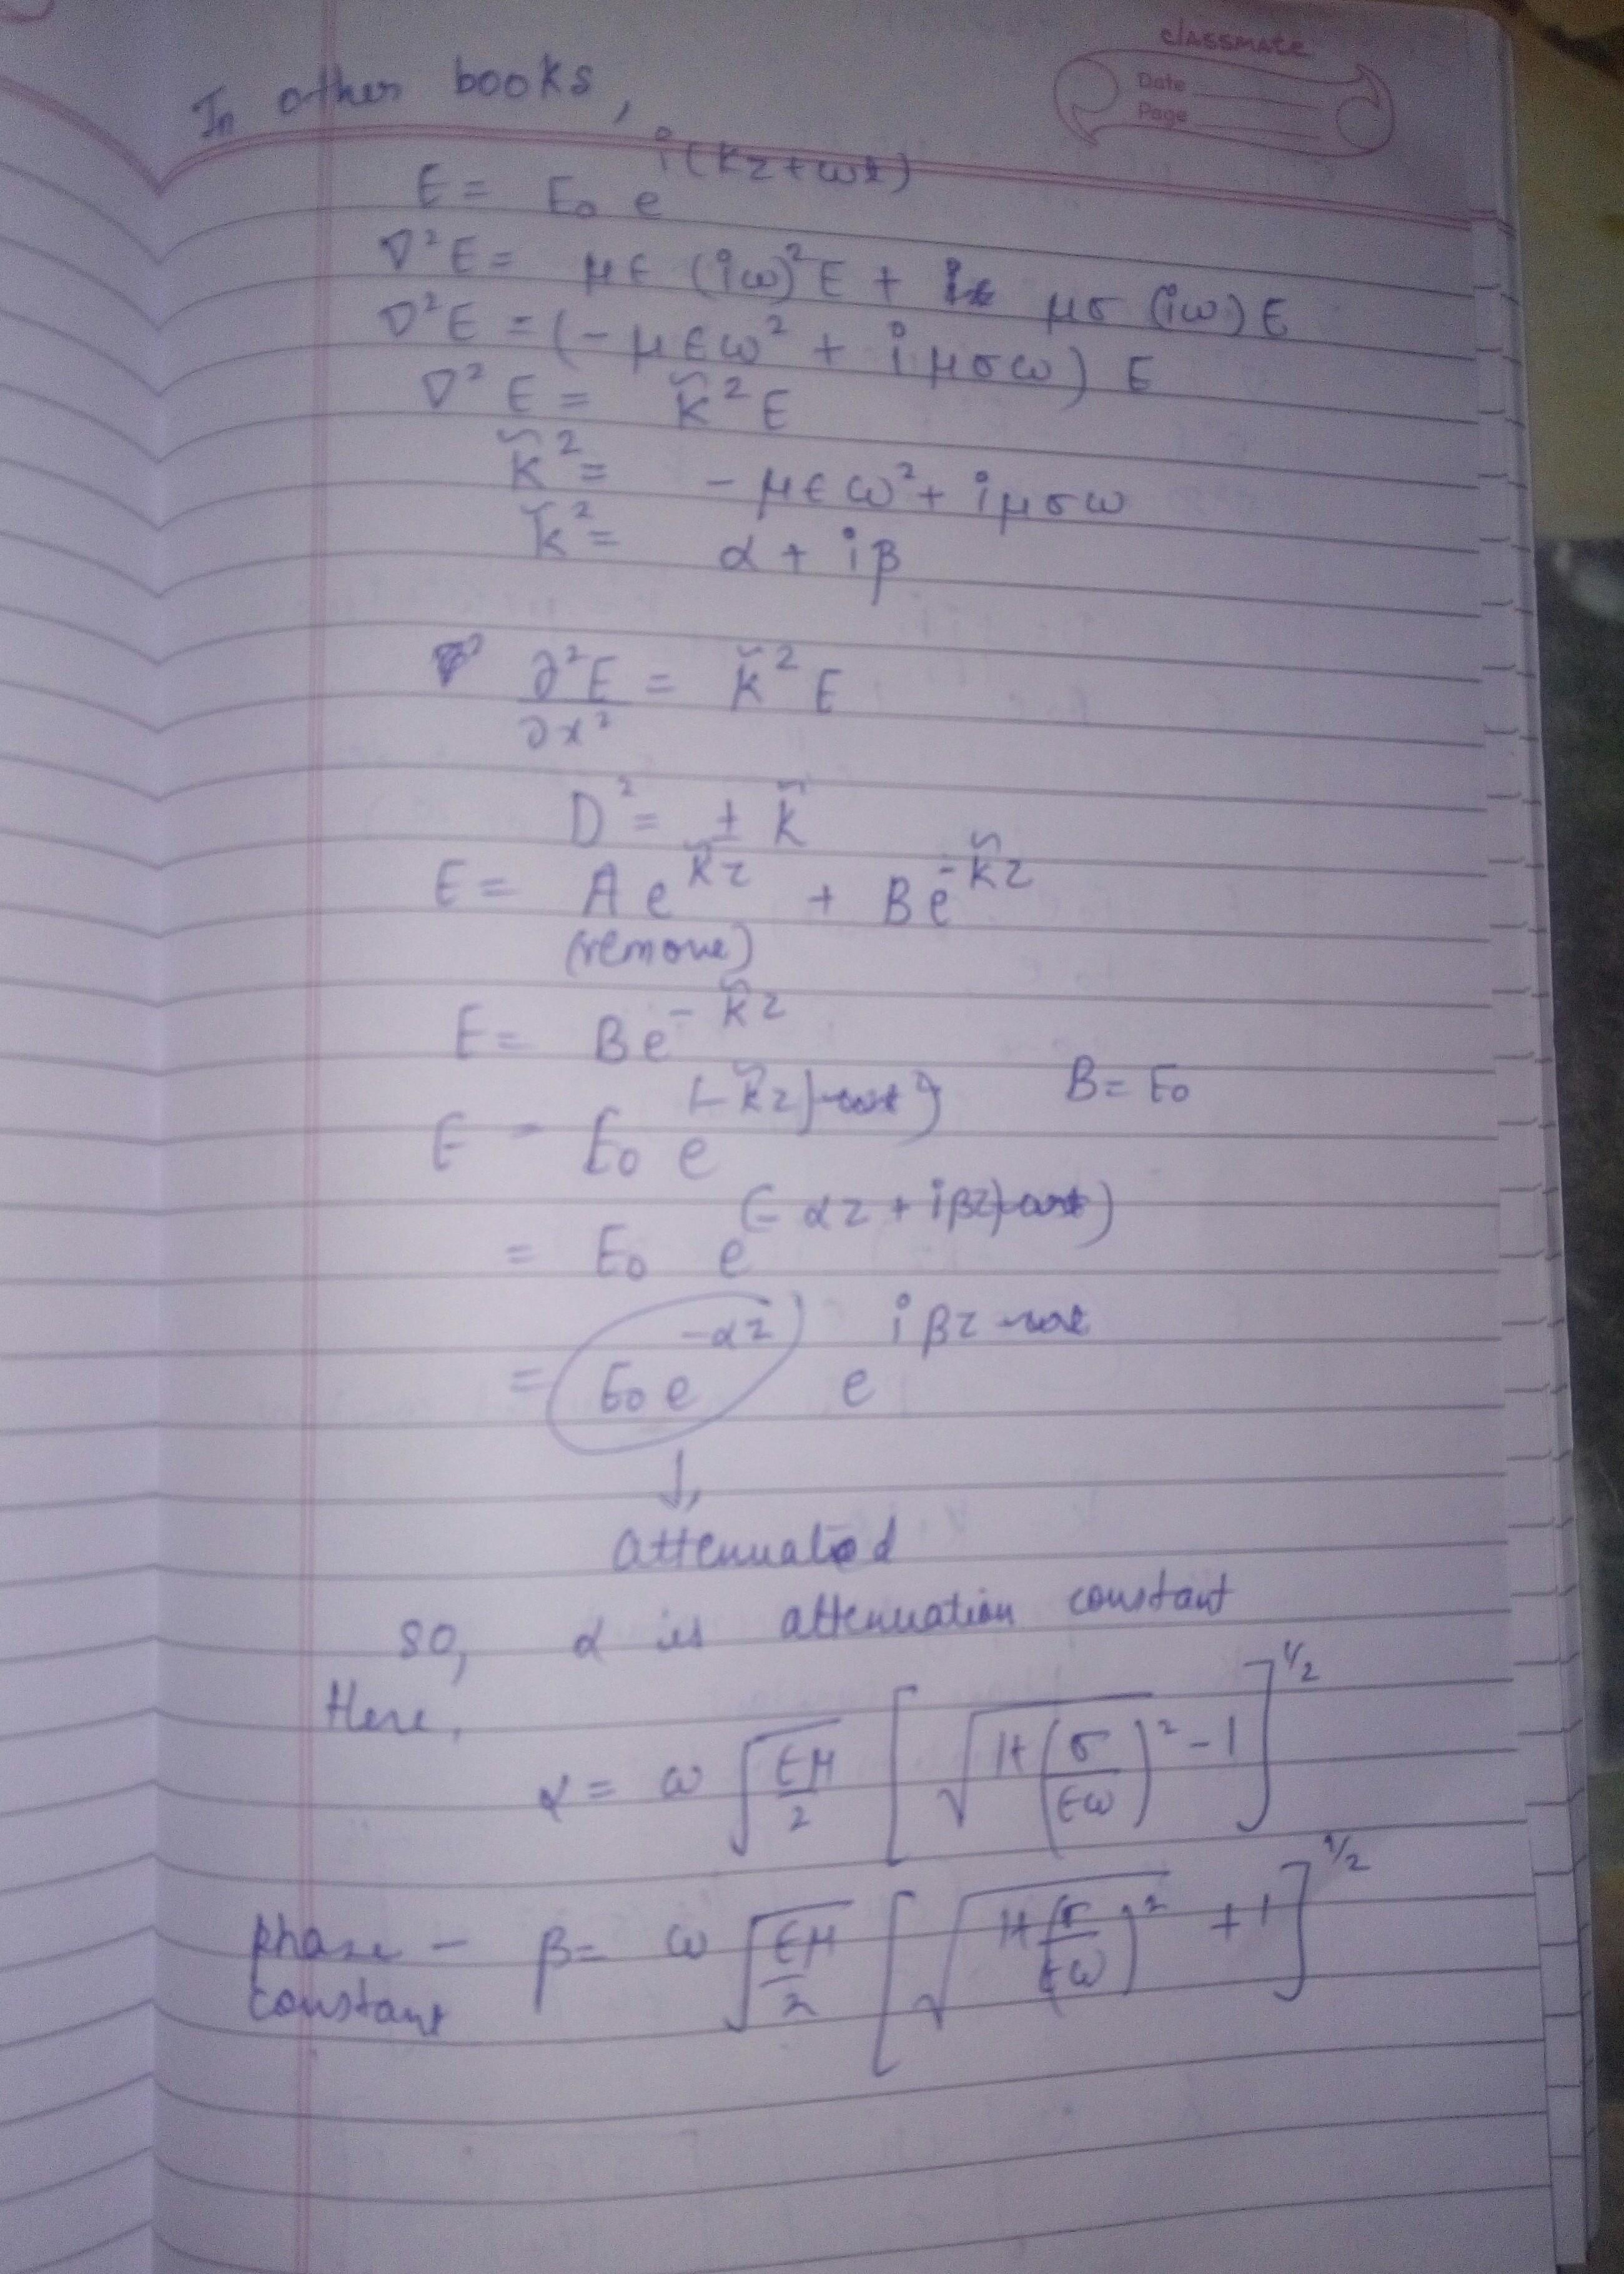 classmate
Date
Page
In other books,
E = E₀ e^i(kz+ωt)
∇²E = με (iω)²E + μσ (iω) E
∇²E = (-μεω² + iμσω) E
∇²E = k̃²E
k̃² = -μεω² + iμσω
k̃² = α + iβ
∂²E/∂x² = k̃²E
D² = ± k̃
E = A e^k̃z + B e^-k̃z
(remove)
E = B e^-k̃z
B = E₀
E = E₀ e^(-k̃z)
= E₀ e^(-αz + iβz)
= E₀ e^-αz e^iβz
↓
attenuated
so, α is attenuation constant
Here,
α = ω √(εμ/2) [√(1+(σ/εω)²) - 1]^1/2
phase constant - β = ω √(εμ/2) [√(1+(σ/εω)²) + 1]^1/2